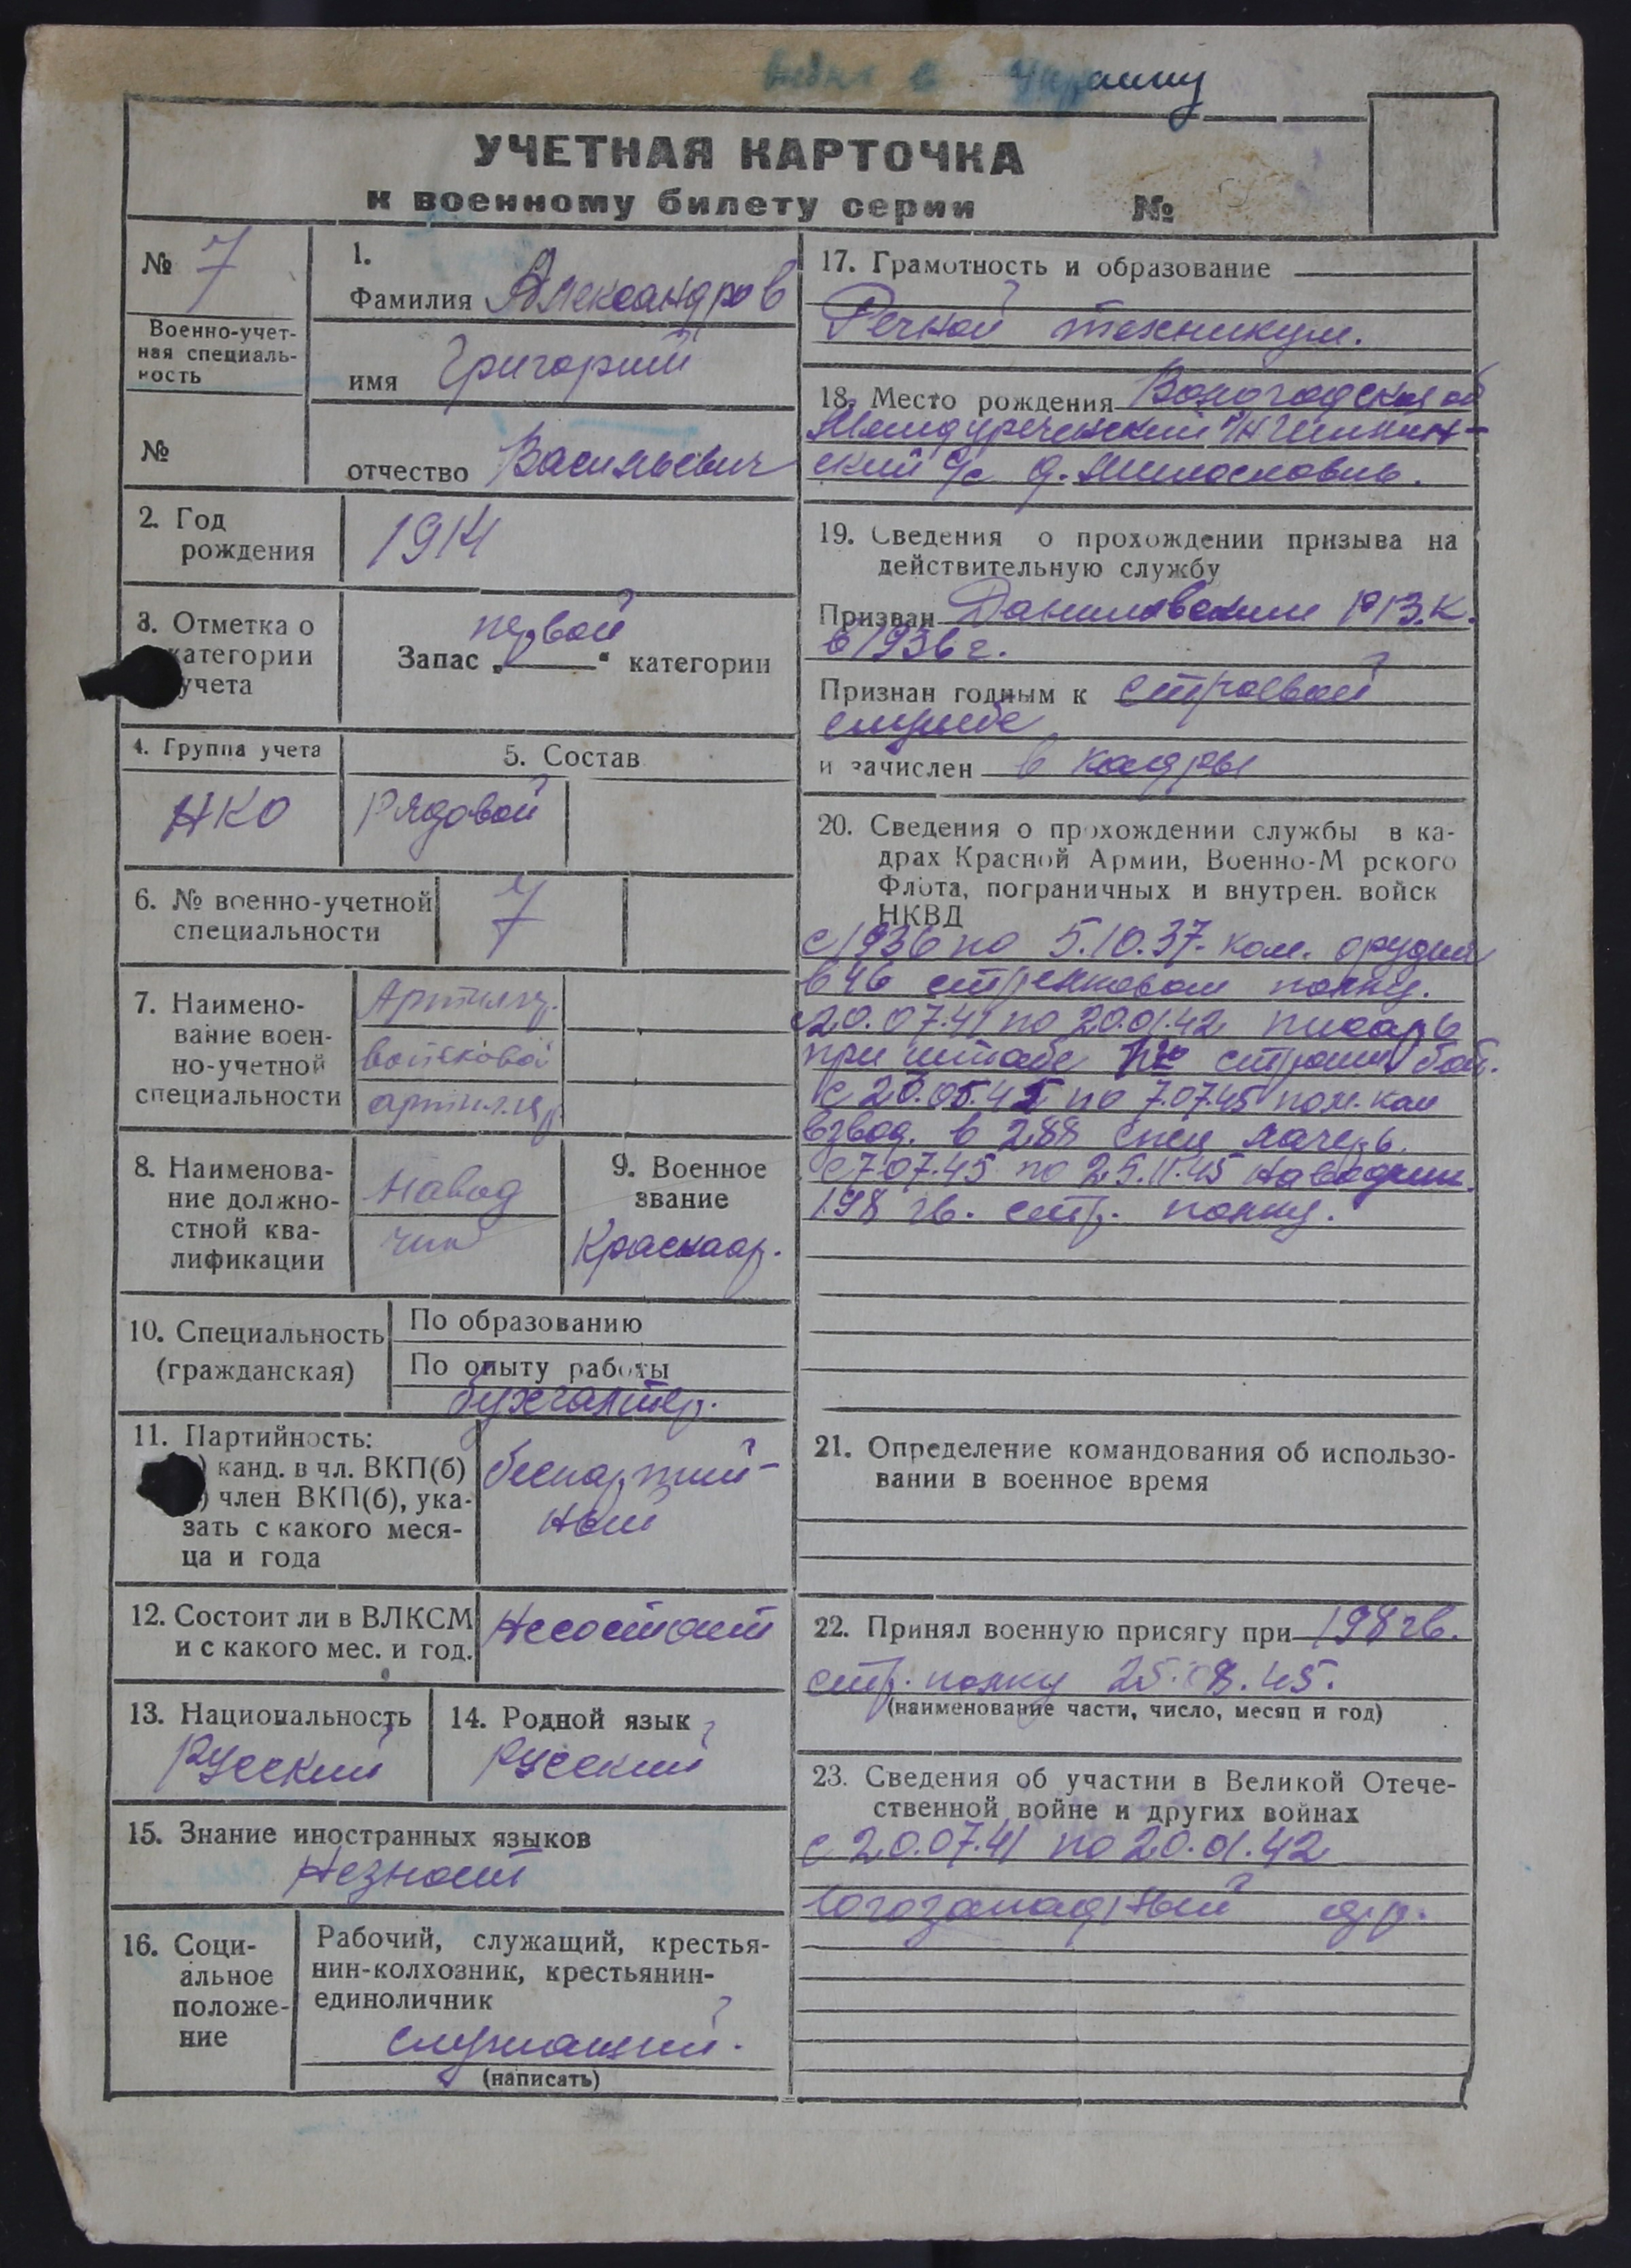 Украину
УЧЕТНАЯ КАРТОЧКА
к военному билету серии №
№ 7
Военно-учет-
ная специаль-
ность
№
1.
Фамилия Александров
имя Григорий
отчество Васильевич
2. Год
рождения
1914
3. Отметка о
категории
учета
первой
Запас „ “ категории
4. Группа учета
НКО
5. Состав
Рядовой
6. № военно-учетной
специальности
7
7. Наимено-
вание воен-
но-учетной
специальности
Артиллер.
войсковой
артиллер.
8. Наименова-
ние должно-
стной ква-
лификации
Навод
чик
9. Военное
звание
Красноар.
10. Специальность
(гражданская)
По образованию
По опыту работы
бухгалтер.
11. Партийность:
) канд. в чл. ВКП(б)
) член ВКП(б), ука-
зать с какого меся-
ца и года
беспартий-
ный
12. Состоит ли в ВЛКСМ
и с какого мес. и год.
Несостоит
13. Национальность
Русский
14. Родной язык
Русский
15. Знание иностранных языков
Незнает
16. Соци-
альное
положе-
ние
Рабочий, служащий, крестья-
нин-колхозник, крестьянин-
единоличник
служащий.
(написать)
17. Грамотность и образование
Речной техникум.
18. Место рождения Вологодская об
Междуреченский
ский с/с д.
19. Сведения о прохождении призыва на
действительную службу
Призван Даниловским
в 1936 г.
Признан годным к строевой
службе
и зачислен в кадры
20. Сведения о прохождении службы в ка-
драх Красной Армии, Военно-М рского
Флота, пограничных и внутрен. войск
НКВД
с 1936 по 5.10.37. ком. орудия
в 46 стрелковом полку.
с 20.07.41 по 20.01.42 писарь
при штабе строит. бат.
с 20.05.45 по 7.07.45 пом. ком
взвод. в 288 спец лагерь.
с 7.07.45 по 25.11.45 наводчик.
198 гв. стр. полку.
21. Определение командования об использо-
вании в военное время
22. Принял военную присягу при 198 гв.
стр. полку 25.08.45.
(наименование части, число, месяц и год)
23. Сведения об участии в Великой Отече-
ственной войне и других войнах
с 20.07.41 по 20.01.42
Югозападный фр.